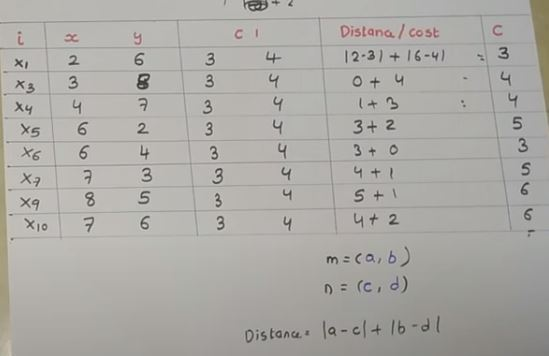 + 2
i x y C 1 Distance/cost C
x1 2 6 3 4 |2-3| + |6-4| = 3
x3 3 8 3 4 0 + 4 - 4
x4 4 7 3 4 1 + 3 : 4
x5 6 2 3 4 3 + 2 5
x6 6 4 3 4 3 + 0 3
x7 7 3 3 4 4 + 1 5
x9 8 5 3 4 5 + 1 6
x10 7 6 3 4 4 + 2 6
m = (a, b)
n = (c, d)
Distance = |a - c| + |b - d|